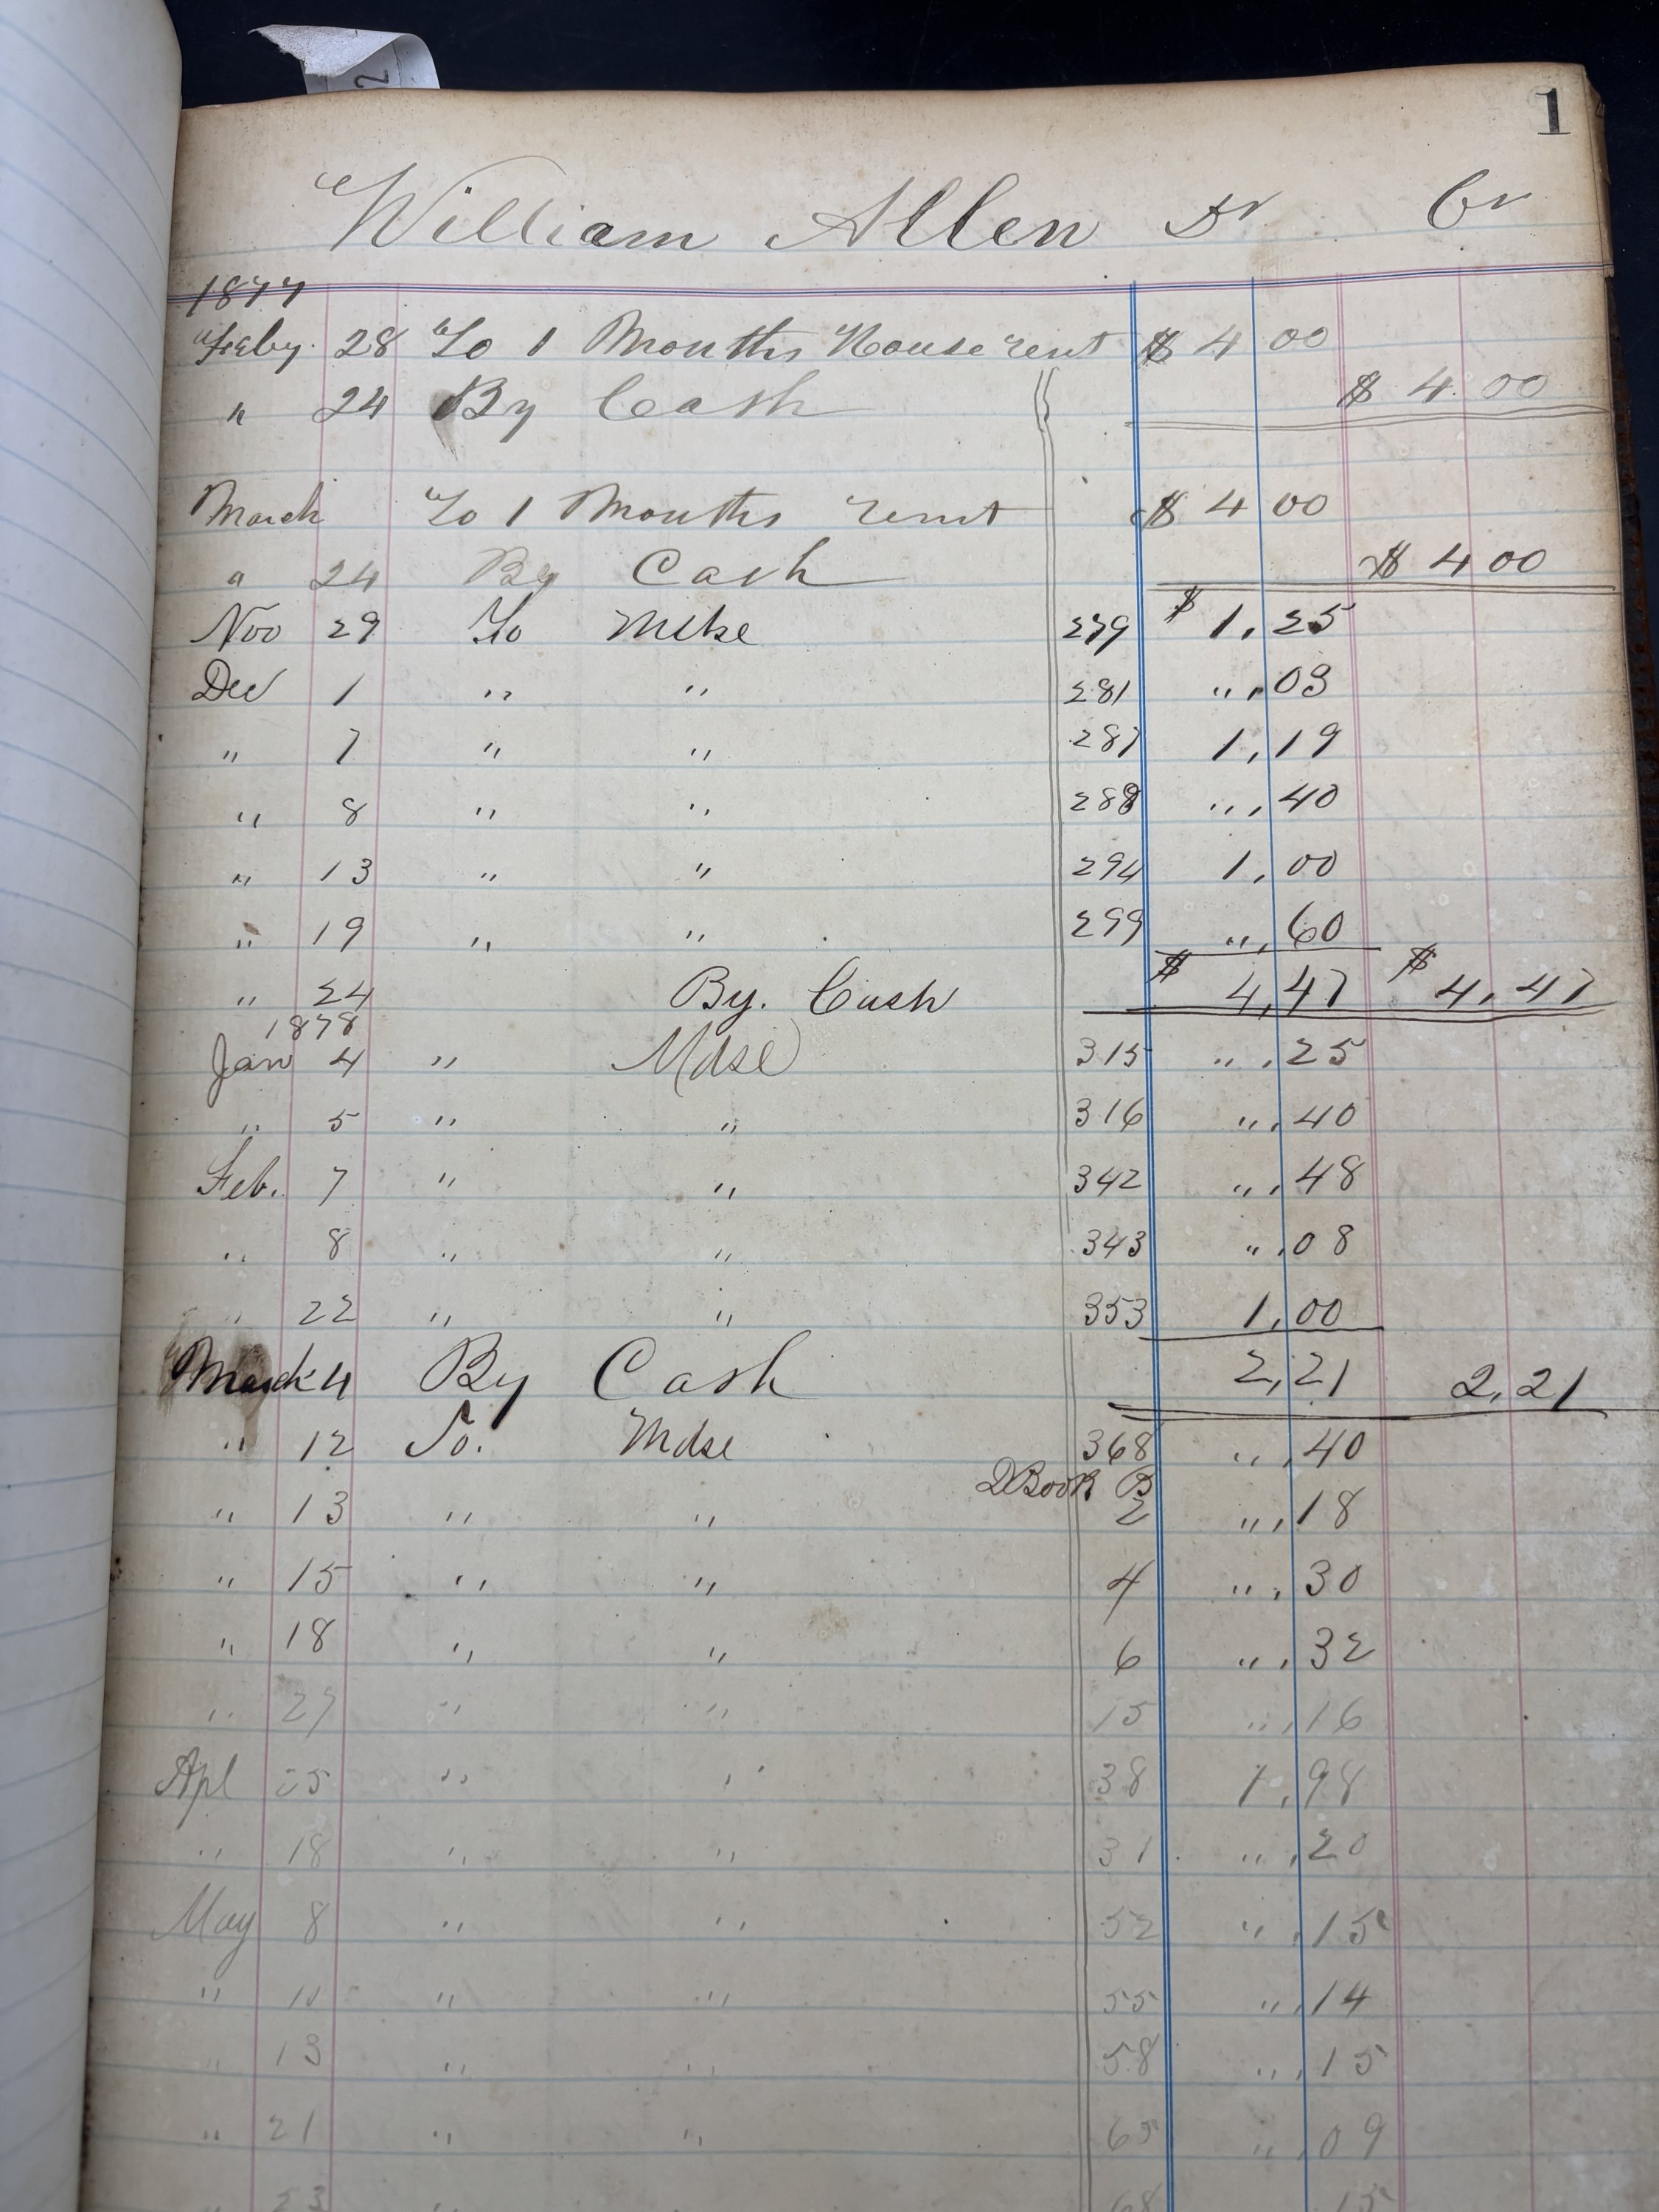 1
William Allen Dr Cr
1877
Feby. 28 To 1 Months House rent $ 4 00
" 24 By Cash $ 4.00
March To 1 Months rent $ 4 00
" 24 By Cash $ 4 00
Nov 29 To Mdse 279 $ 1,25
Dec 1 " " 281 ",03
" 7 " " 287 1,19
" 8 " " 288 ",40
" 13 " " 294 1,00
" 19 " " 299 ",60
" 24 By. Cash $ 4,47 $ 4,47
1878
Jan 4 " Mdse 315 ",25
" 5 " " 316 ",40
Feb. 7 " " 342 ",48
" 8 " " 343 ",08
" 22 " " 353 1,00
March 4 By Cash 2,21 2,21
" 12 To. Mdse 368 ",40
DBook B
" 13 " " 2 ",18
" 15 " " 4 ",30
" 18 " " 6 ",32
" 27 " " 15 ",16
Apl 25 " " 38 1,98
" 18 " " 31 ",20
May 8 " " 52 ",15
" 11 " " 55 ",14
" 13 " " 58 ",15
" 21 " " 65 ",09
" 23 " 68 15